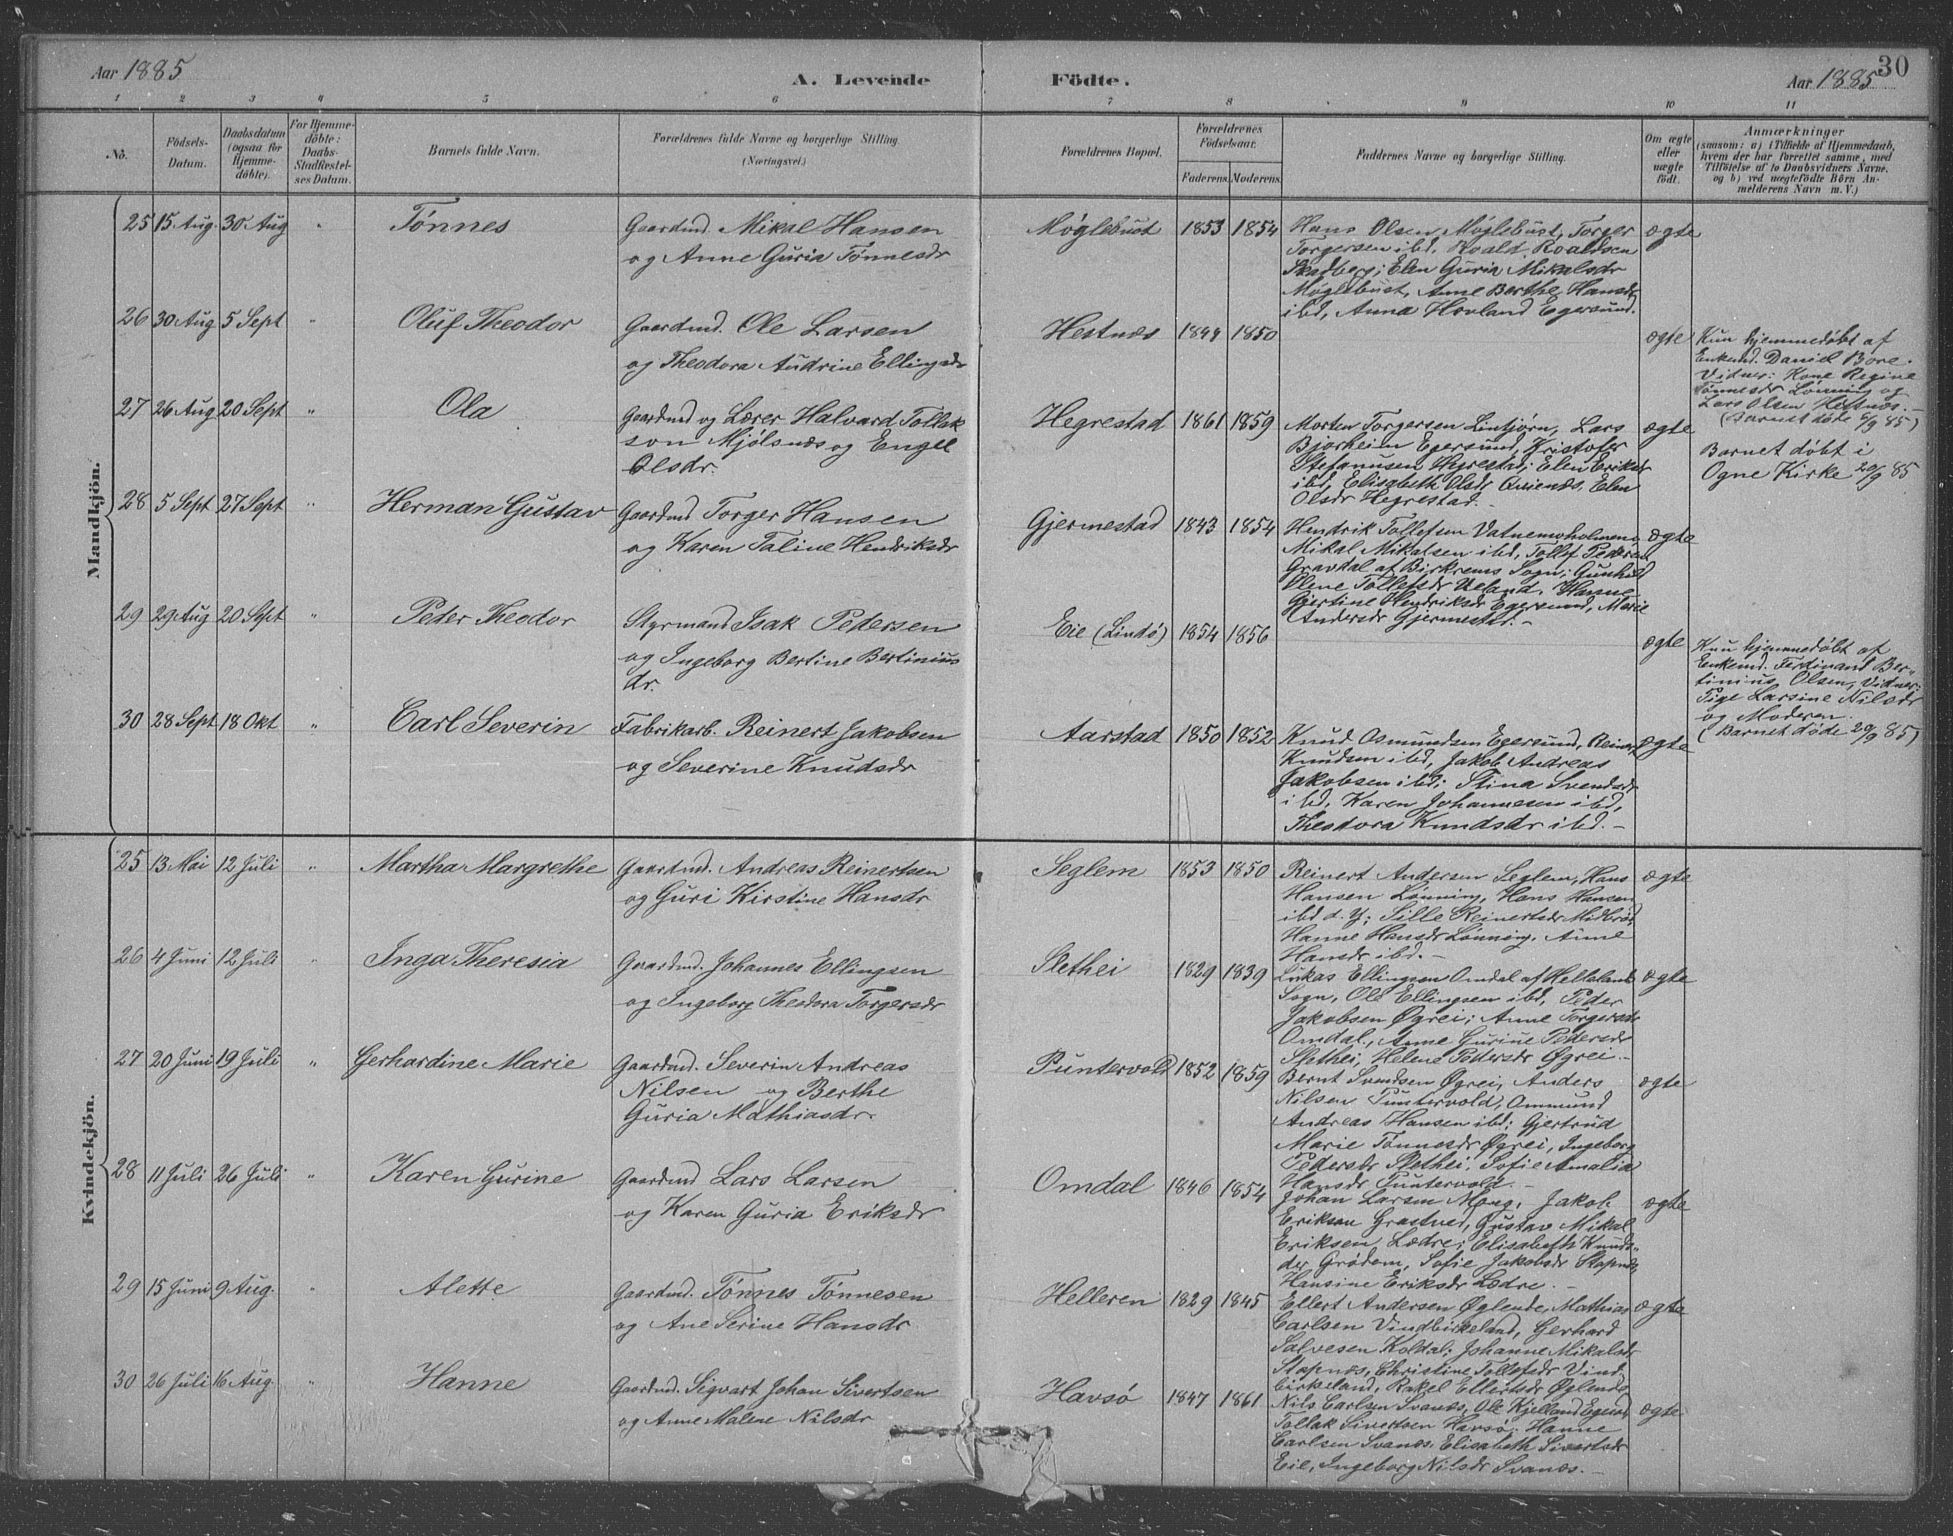 Aar 1885
A. Levende Födte.
Aar 1885
30
1 2 3 4 5 6 7 8 9 10 11
No.
Födsels-Datum.
Daabsdatum (ogsaa for Hjemme-döbte).
For Hjemme-döbte: Daabs-Stadfæstel-ses Datum.
Barnets fulde Navn.
Forældrenes fulde Navne og borgerlige Stilling (Næringsvei.)
Forældrenes Bopæl.
Forældrenes Födselsaar.
Faderens. Moderens.
Faddernes Navne og borgerlige Stilling.
Om ægte eller uægte födt.
Anmærkninger
(saasom: a) i Tilfælde af Hjemmedaab,
hvem der har forrettet samme, med
Tilföielse af to Daabsvidners Navne,
og b) ved uægtefödte Börn An-
melderens Navn m. V.)
Mandkjön.
25 15 Aug. 30 Aug " Tønnes
Gaardmd. Mikal Hansen
og Anne Guria Tønnesdr
Møglebust 1853 1854
Hans Olsen Møglebust, Torger
Torgersen ibd, Roald Roaldsen
Skadberg; Elen Guria Mikalsdr
Møglebust, Anne Berthe Hansdr
ibd, Anna Hovland Egersund.
ægte
26 30 Aug 5 Sept " Oluf Theodor
Gaardmd. Ole Larsen
og Theodora Audrine Ellingsdr
Hestnæs 1849 1850
ægte
Kun hjemmedøbt af
Enkemd. Daniel Bore.
Vidner: Kone Regine
Tønnesdr Lønning og
Lars Olsen Hestnæs.-
(Barnet døde 8/9 85)
27 26 Aug 20 Sept " Ola
Gaardmd og Lærer Halvard Tollak
son Mjølsnæs og Engel
Olsdr.
Hegrestad 1861 1859
Morten Torgersen Lintjørn, Lars
Bjørheim Egersund, Kristofer
Stefanusen Hegrestad; Elen Eriksdr
ibd, Elisabeth Olsdr, Elen
Olsdr Hegrestad.-
ægte
Barnet døbt i
Ogne Kirke 20/9 85
28 5 Sept 27 Sept " Herman Gustav
Gaardmd Torger Hansen
og Karen Taline Hendriksdr
Gjermestad 1843 1854
Hendrik Tollefsen Vatnemoholmen,
Mikal Mikalsen ibd, Tollef Pedersen
Gravdal af Birkrems Sogn; Gunhild
Oline Tollefsdr Ueland, Hanne
Gjertine Hendriksdr Egersund, Marie
Andersdr Gjermestad.-
ægte
29 29 Aug 20 Sept " Peder Theodor
Styrmand Isak Pedersen
og Ingeborg Bertine Bertinius
dr.
Eie (Lindø) 1854 1856
ægte
Kun hjemmedøbt af
Enkemd. Ferdinand Ber-
tinius Olsen, Vidner:
Pige Larsine Nilsdr
og Moderen.
(Barnet døde 20/9 85)
30 28 Sept 18 Okt " Carl Severin
Fabrikarb. Reinert Jakobsen
og Severine Knudsdr
Aarstad 1850 1852
Knud Osmundsen Egersund, Reinert
Knudsen ibd, Jakob Andreas
Jakobsen ibd; Stina Svendsdr
ibd, Karen Johannesen ibd,
Theodora Knudsdr ibd.-
ægte
Kvindekjön.
25 13 Mai 12 Juli " Martha Margrethe
Gaardmd. Andreas Reinertsen
og Guri Kirstine Hansdr
Seglem 1853 1850
Reinert Andersen Seglem, Hans
Hansen Lønning, Hans Hansen
ibd d. Y; Sille Reinertsdr Midbrød,
Hanne Hansdr Lønning, Anne
Hansdr ibd.-
ægte
26 4 Juni 12 Juli " Inga Theresia
Gaardmd. Johannes Ellingsen
og Ingeborg Theodora Torgersdr
Slethei 1829 1839
Lukas Ellingsen Omdal af Hellelands
Sogn, Ole Ellingsen ibd, Peder
Jakobsen Øgrei; Anne Torgersdr
Omdal, Anne Gurine Pedersdr
Slethei, Helene Pedersdr Øgrei.-
ægte
27 20 Juni 19 Juli " Gerhardine Marie
Gaardmd. Severin Andreas
Nilsen og Berthe
Guria Mathiasdr.
Puntervold 1852 1859
Bernt Svendsen Øgrei, Anders
Nilsen Puntervold, Ommund
Andreas Hansen ibd; Gjertrud
Marie Tønnesdr Øgrei, Ingeborg
Pedersdr Slethei, Sofie Amalia
Hansdr Puntervold.-
ægte
28 11 Juli 26 Juli " Karen Gurine
Gaardmd Lars Larsen
og Karen Guria Eriksdr
Omdal 1846 1854
Johan Larsen Mong, Jakob
Eriksen Grastved, Gustav Mikal
Eriksen Lædre; Elisabeth Knuds-
dr Grødem, Sofie Jakobsdr Stapnæs,
Hansine Eriksdr Lædre.-
ægte
29 15 Juni 9 Aug. " Alette
Gaardmd. Tønnes Tønnesen
og Ane Serine Hansdr
Helleren 1829 1845
Ellert Andersen Øglende, Mathias
Carlsen Vindbirkeland, Gerhard
Salvesen Koldal; Johanne Mikalsdr
Stapnæs, Christine Tollefsdr Vind
birkeland, Rakel Ellertsdr Øglende
ægte
30 26 Juli 16 Aug. " Hanne
Gaardmd. Sigvart Johan Sivertsen
og Anne Malene Nilsdr
Havsø 1847 1861
Nils Carlsen Svanæs, Ole Kjelland Egersund,
Tollak Sivertsen Havsø; Hanne
Carlsen Svanæs, Elisabeth Sivertsdr
Eie, Ingeborg Nilsdr Svanæs.-
ægte